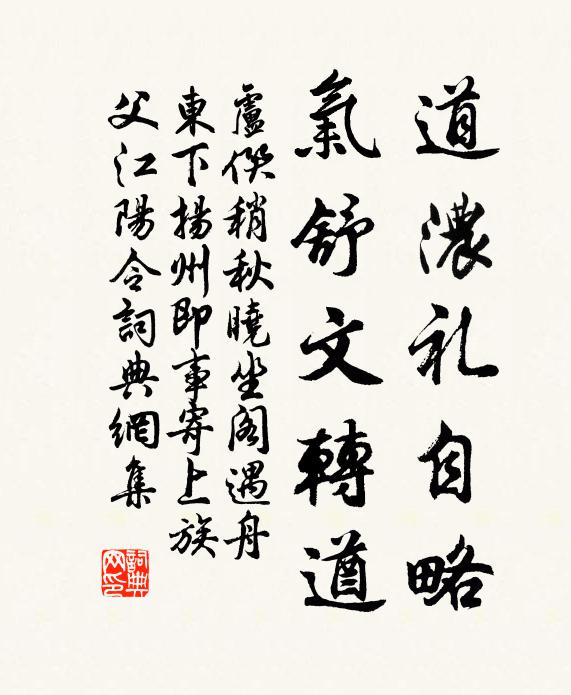 道濃礼自略
氣舒文轉遒
盧僎稍秋曉坐閣遇舟
東下揚州即事寄上族
父江陽令詞典網集
詞典網印